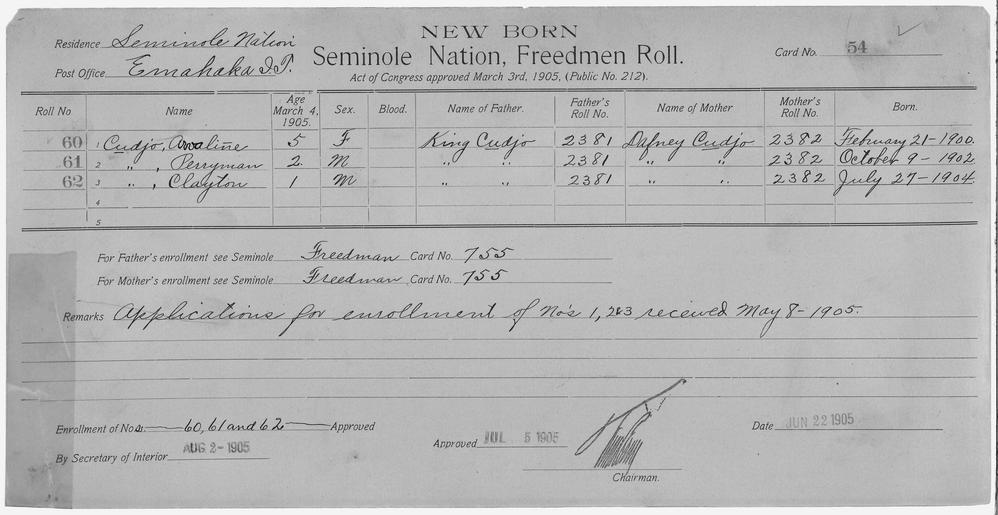 NEW BORN
Seminole Nation, Freedmen Roll.
Act of Congress approved March 3rd, 1905, (Public No. 212).
Residence Seminole Nation
Post Office Emahaka I.T.
Card No. 54
Roll No Name Age March 4, 1905. Sex. Blood. Name of Father. Father's Roll No. Name of Mother Mother's Roll No. Born.
60 1 Cudjo, 5 F King Cudjo 2381 Dafney Cudjo 2382 February 21-1900.
61 2 " , Perryman 2 M " " 2381 " " 2382 October 9-1902
62 3 " , Clayton 1 M " " 2381 " " 2382 July 27-1904.
4
5
For Father's enrollment see Seminole Freedman Card No. 755
For Mother's enrollment see Seminole Freedman Card No. 755
Remarks Applications for enrollment of No's 1, 2&3 received May 8-1905.
Enrollment of Nos. 60, 61 and 62 Approved
By Secretary of Interior AUG 2-1905
Approved JUL 5 1905
Chairman.
Date JUN 22 1905